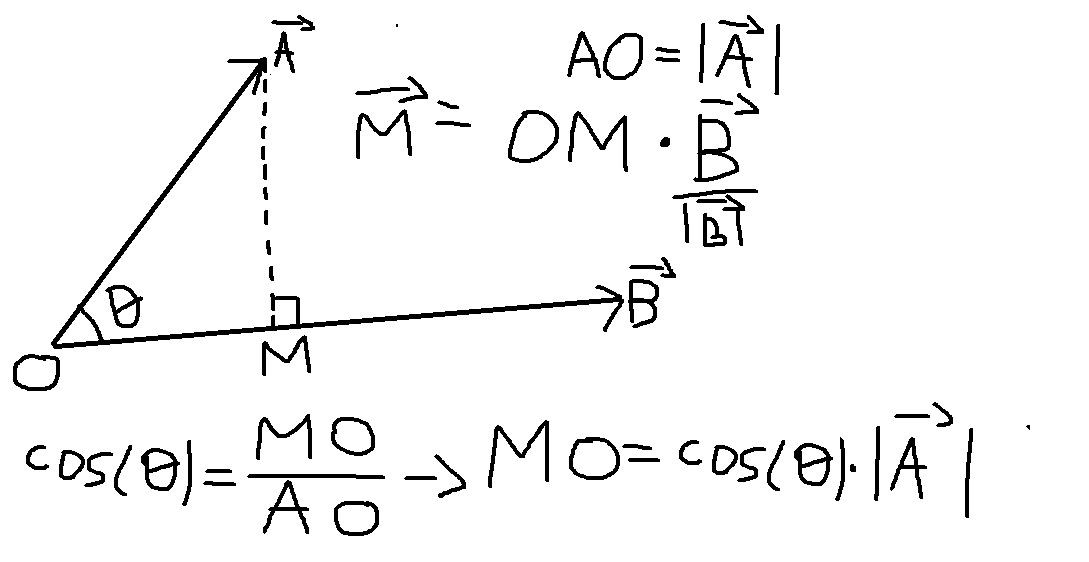 A⃗
AO = |A⃗|
M⃗ = OM · B⃗ / |B⃗|
θ
B⃗
O
M
cos(θ) = MO / AO → MO = cos(θ) · |A⃗|